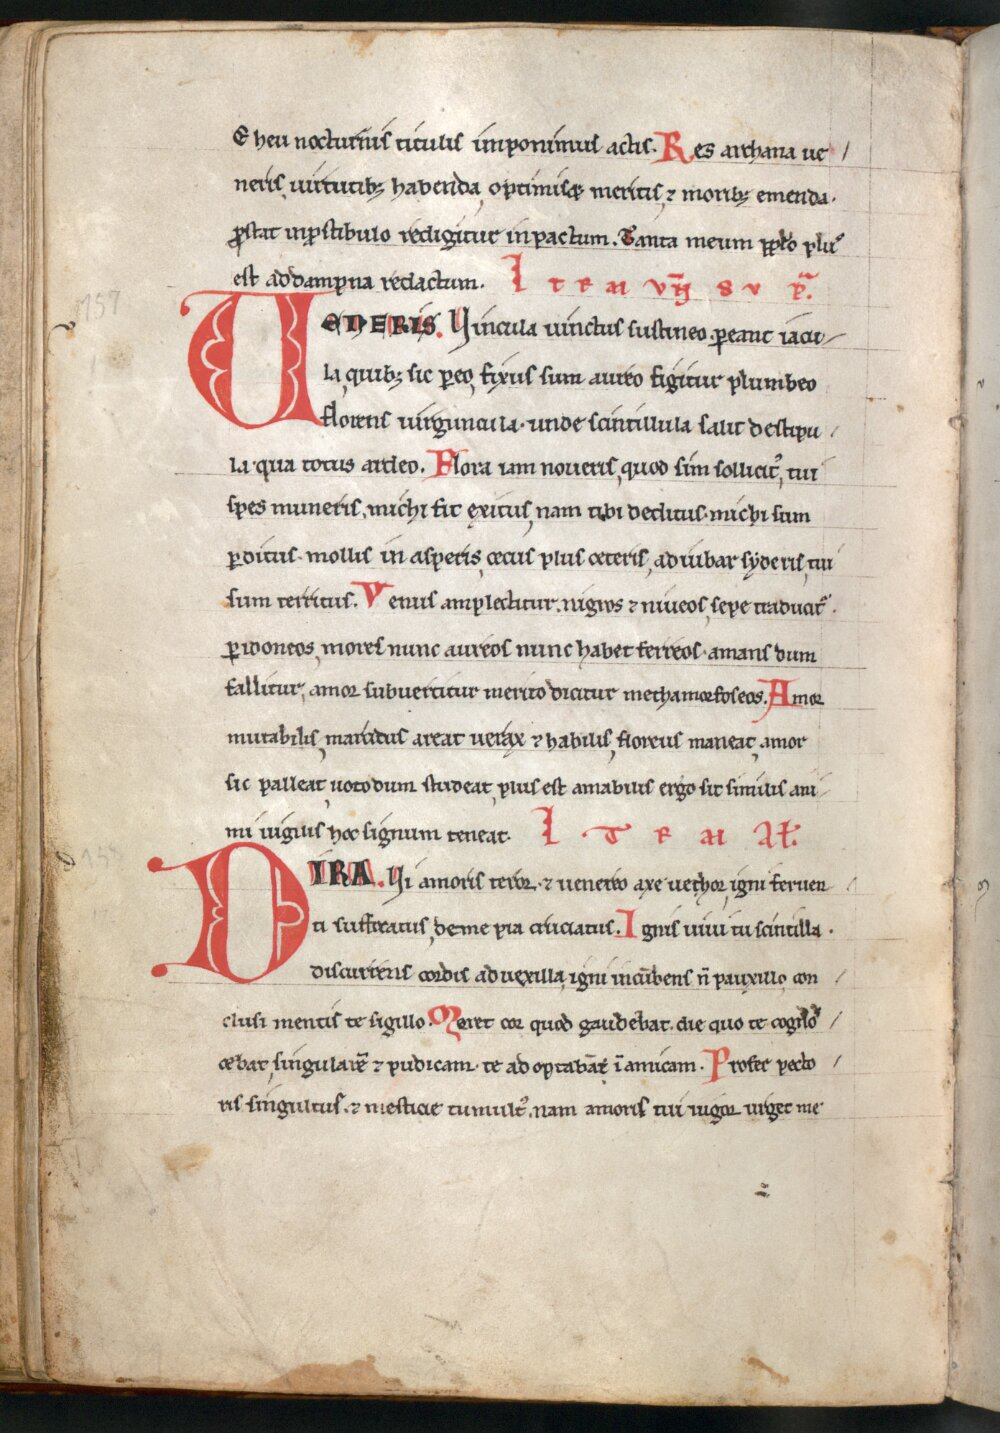 E heu nocturnis titulis imponimus actis. Res archana ue /
neris, uirtutibꝫ habenda, optimisqꝫ meritis, ⁊ moribꝫ emenda.
ꝓstat inꝓstibulo redigitur inpactum. Tanta meum ꝓpt̄o plusꝰ
est addampna redactum. ITEM VN̄ SVP̄.
UENERIS. Vincula uinctus sustineo. ꝑeant iacu /
la, quibꝫ sic ꝑeo, fixus sum aureo figitur plumbeo
florens uirguncula. unde scintillula salit destipu /
la. qua totus ardeo. Flora iam noueris, quod sim sollicitꝰ, tui
spes muneris, michi fit exitus, nam tibi deditus. michi sum
ꝑditus. mollis in asperis, cecus plus ceteris, ad iubar syderis, tui
sum territus. Venus amplectitur. nigros ⁊ niueos, sepe traducit᷑.
ꝑ idoneos, mores nunc aureos nunc habet ferreos. amans dum
fallitur, amor subuertitur merito dicitur methamorfoseos. Amor
mutabilis, marcidus areat uerax ⁊ habilis, floreus maneat, amor
sic palleat, uoto dum studeat, plus est amabilis ergo sit similis ani /
mi uigilis hoc signum teneat. ITEM AL̄.
DIRA. Vi amoris teror. ⁊ uenereo axe uechor, igni feruen /
ti suffocatus, deme pia cruciatus. Ignis uiui tu scintilla.
discurrens cordis ad uexilla, igni incūbens n̄ pauxillo, con /
clusi mentis te sigillo. Meret cor quod gaudebat. die quo te cognos /
cebat, singularē ⁊ pudicam. te adoptabat ī amicam. Profer pecto /
ris singultus. ⁊ mesticie tumultꝰ. nam amoris tui uigor urget me